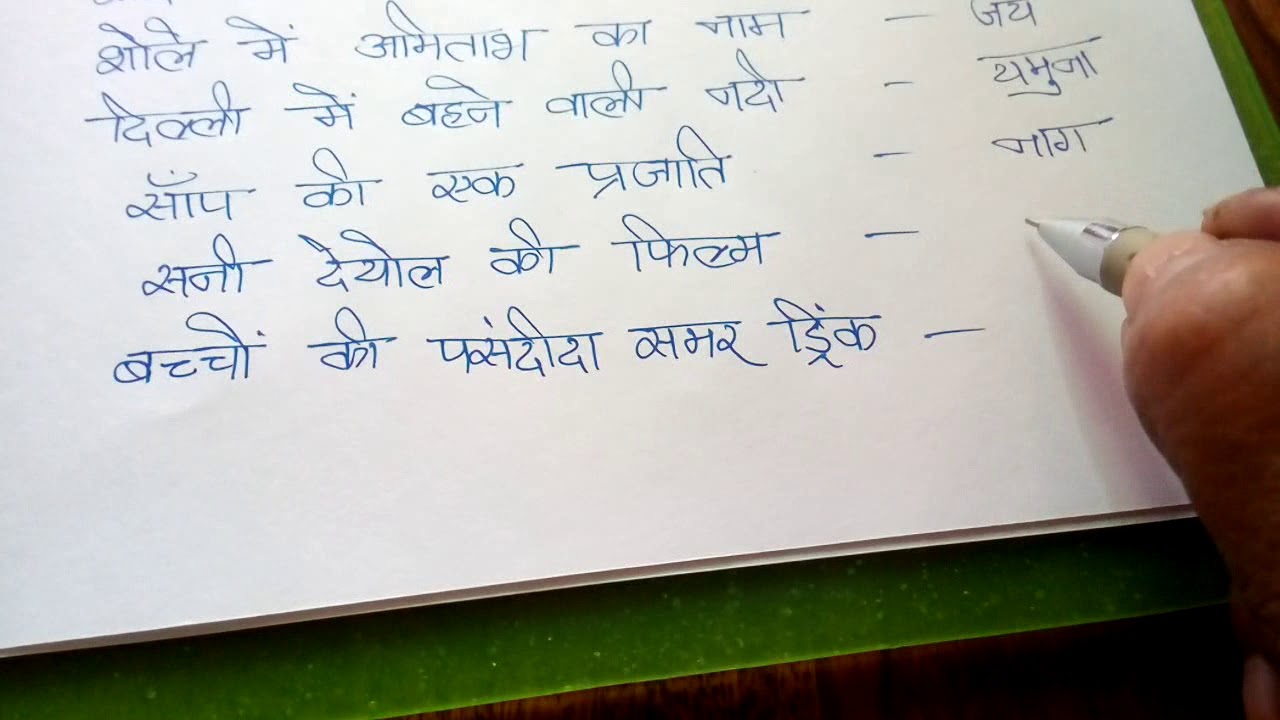 शोले में अमिताभ का नाम - जय
दिल्ली में बहने वाली नदी - यमुना
साँप की एक प्रजाति - नाग
सनी देयोल की फिल्म -
बच्चों की पसंदीदा समर ड्रिंक -